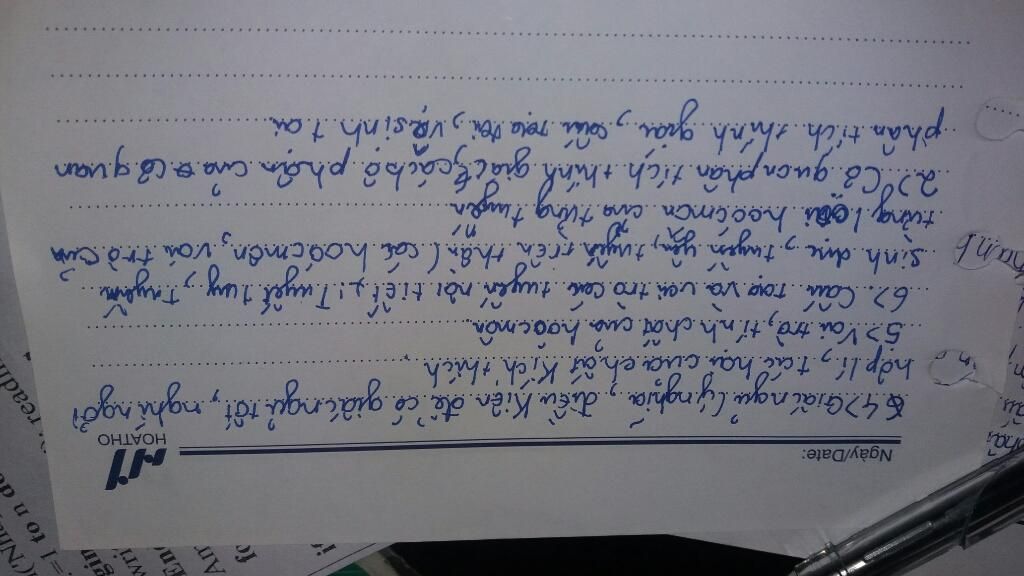 HOATHO
Ngày/Date:
4) Giấc ngủ (ý nghĩa, điều kiện để có giấc ngủ tốt, nghỉ ngơi
hợp lí, tác hại của chất kích thích
5) Vai trò, tính chất của hoocmôn
6). Cấu tạo và vai trò các tuyến nội tiết: Tuyến tụy, tuyến
sinh dục, tuyến yên, tuyến trên thận (các hoócmôn, vai trò của
từng loại hoócmôn của từng tuyến
2) Cơ quan phân tích thính giác, các bộ phận của cơ quan
phân tích thính giác, cấu tạo tai, vệ sinh tai
hành
readin
1 to n